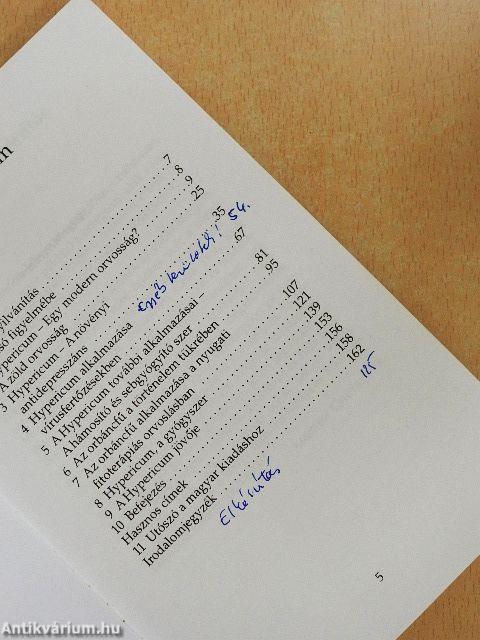 m
yilvánítás 7
só figyelmébe 8
ypericum – Egy modern orvosság? 9
A zöld orvosság 25
3 Hypericum – A növényi
antidepresszáns 35
54.
4 Hypericum alkalmazása
vírusfertőzésekben 67
5 A Hypericum további alkalmazásai –
A hámosító és sebgyógyító szer 81
6 Az orbáncfű a történelem tükrében 95
7 Az orbáncfű alkalmazása a nyugati
fitoterápiás orvoslásban 107
8 Hypericum, a gyógyszer 121
9 A Hypericum jövője 139
10 Befejezés 153
Hasznos címek 156
11 Utószó a magyar kiadáshoz 158
Irodalomjegyzék 162
125
Elkészítás
5
Antikvárium.hu